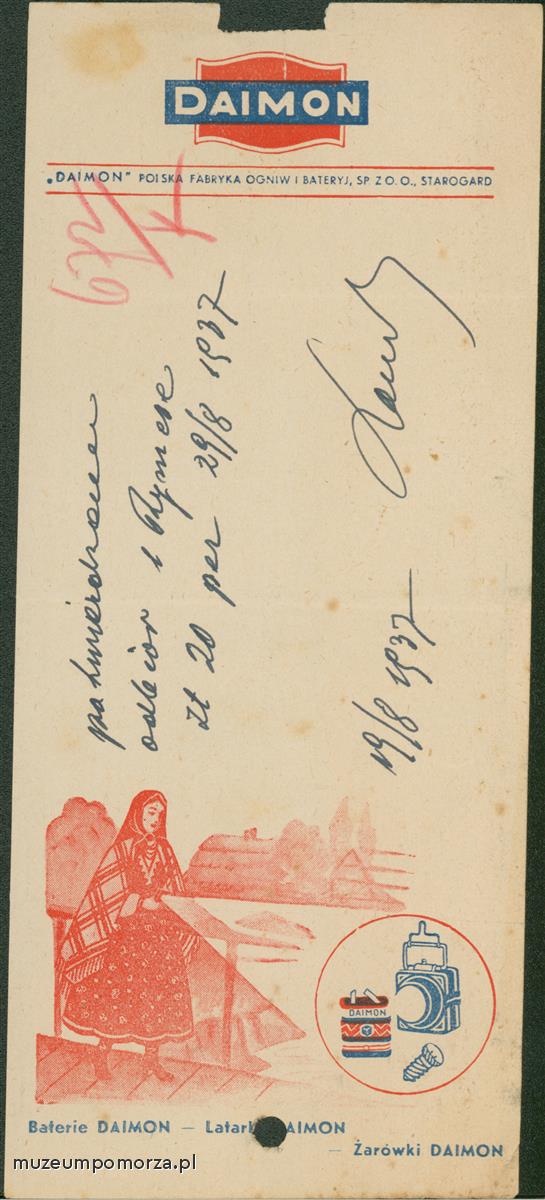 DAIMON
„DAIMON” POLSKA FABRYKA OGNIW I BATERYJ, SP. Z O. O., STAROGARD
potwierdzam
odbiór 1 Rymese
zł 20 per 29/8 1937
19/8 1937
DAIMON
Baterie DAIMON – Latarki DAIMON
– Żarówki DAIMON
muzeumpomorza.pl